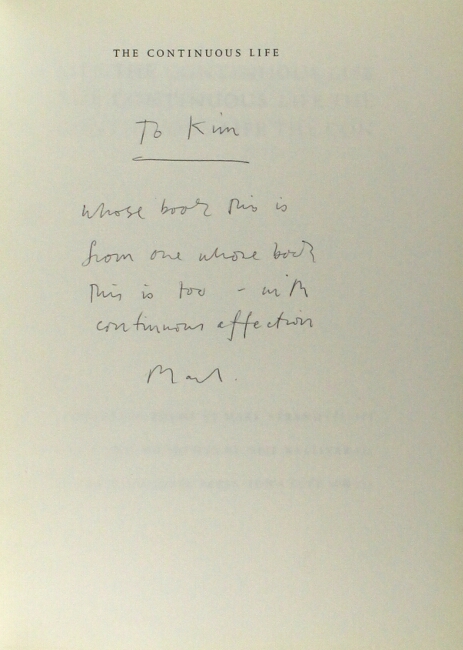 THE CONTINUOUS LIFE
To Kim
whose book this is
from one whose book
this is too – with
continuous affection
Mark.